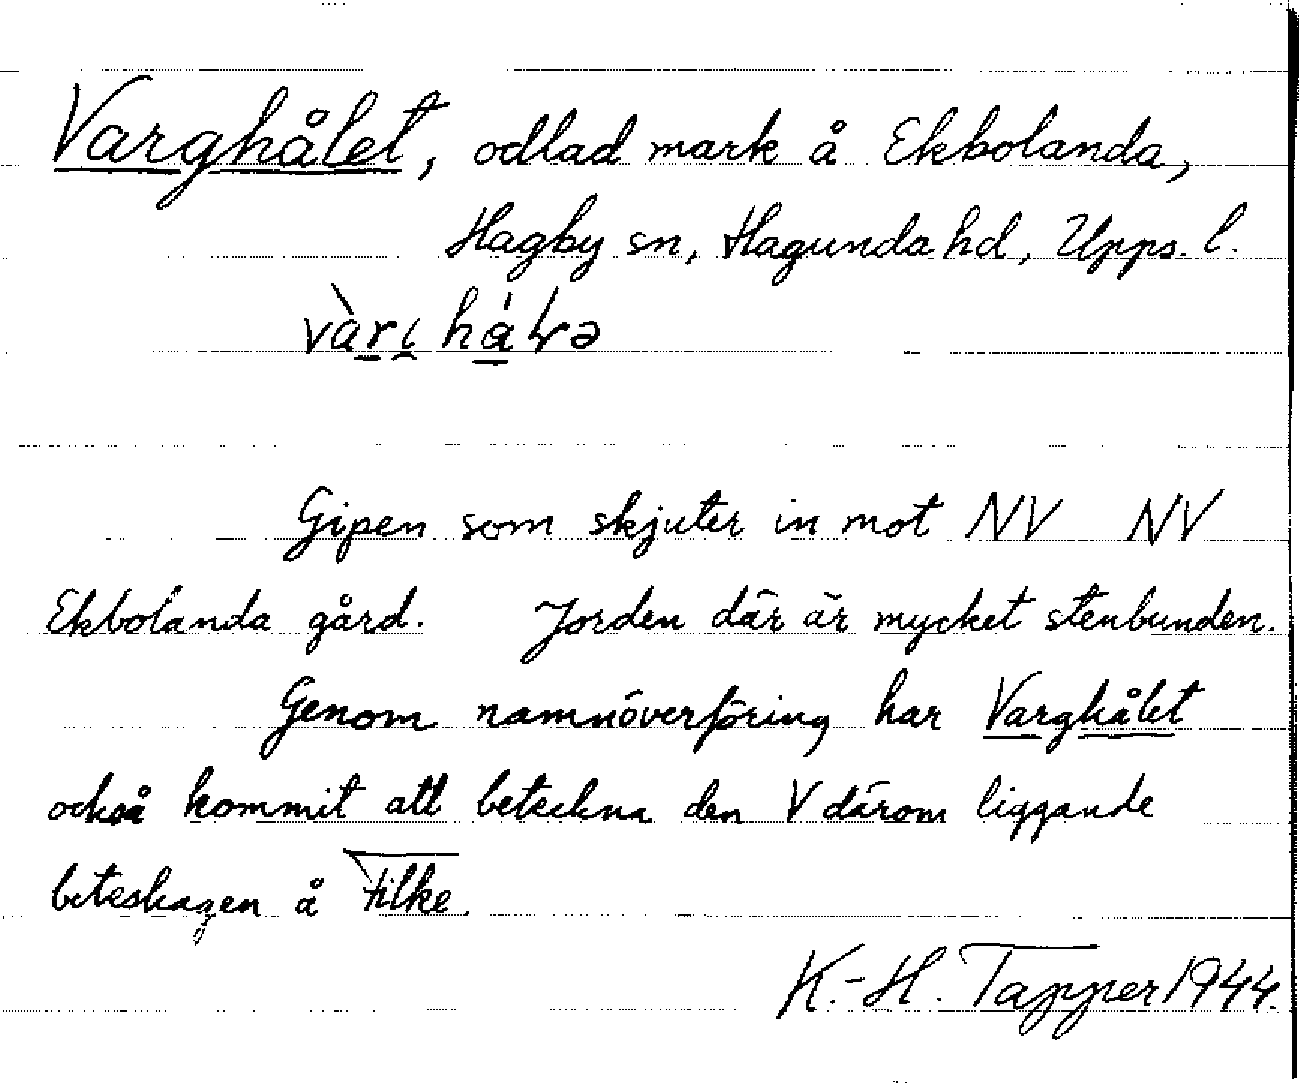 Varghålet, odlad mark å Ekbolanda,
Hagby sn, Hagunda hd, Upps. l.
Gipen som skjuter in mot NV NV
Ekbolanda gård. Jorden där är mycket stenbunden.
Genom namnöverföring har Varghålet
också kommit att beteckna den V därom liggande
beteshagen å Filke
K.-H. Tapper 1944.